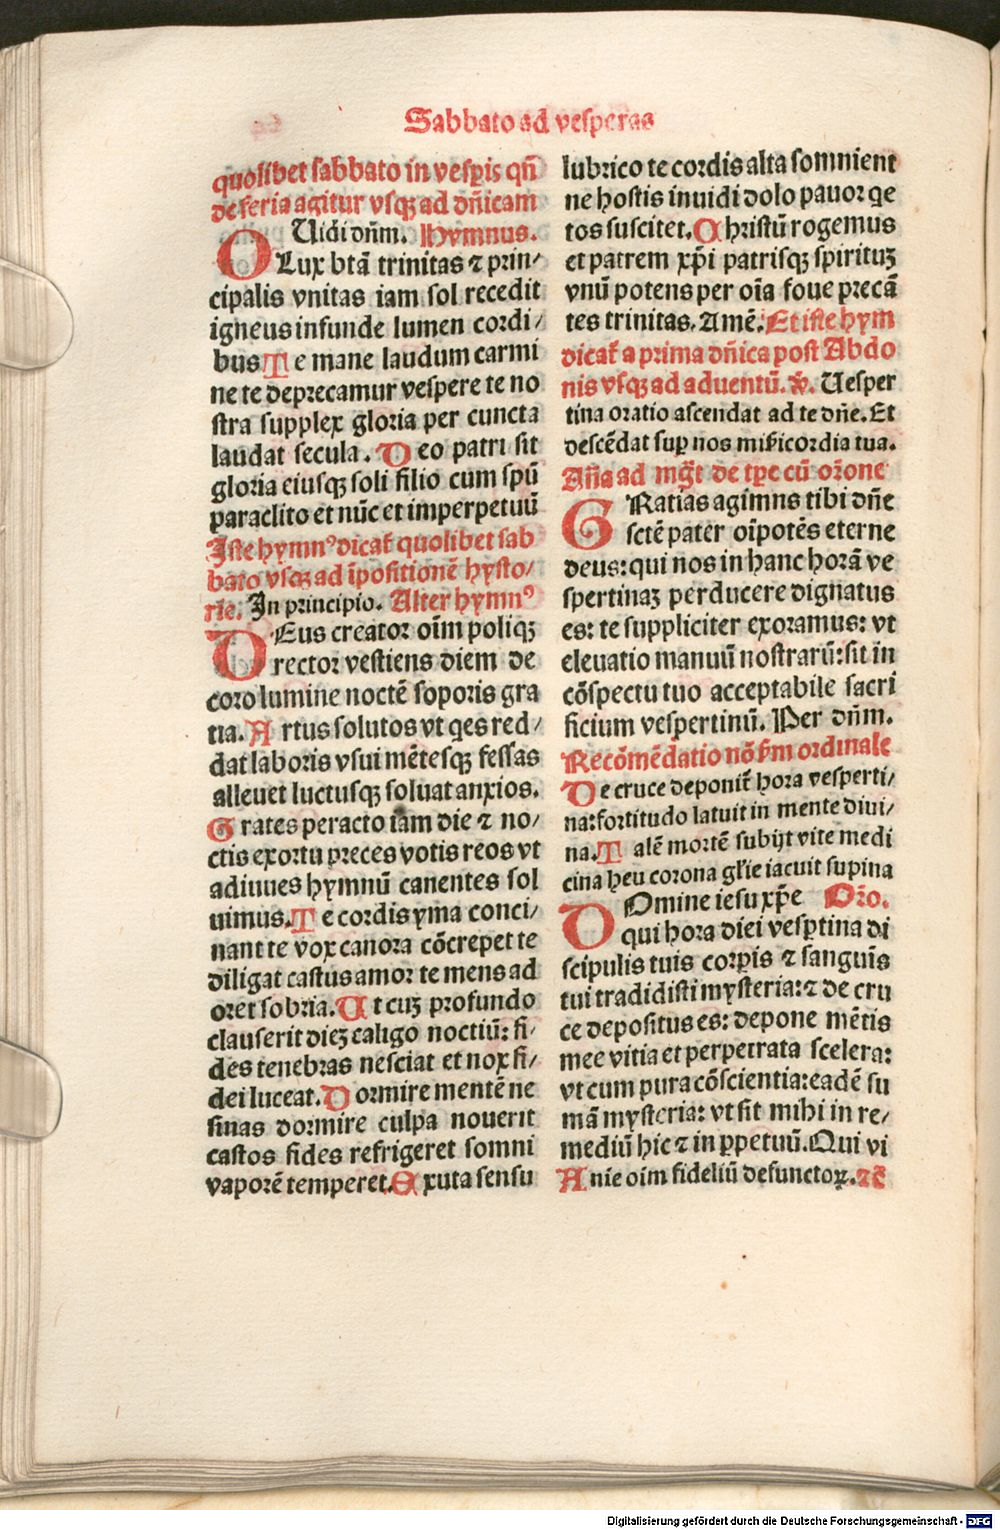 Sabbato ad vesperas
quolibet sabbato in vesꝑis qn̄
de feria agitur vsqꝫ ad dn̄icam
Uidi dn̄m. Hymnus.
O Lux btā trinitas ⁊ prin/
cipalis vnitas iam sol recedit
igneus infunde lumen cordi/
bus Te mane laudum carmi
ne te deprecamur vespere te no
stra supplex gloria per cuncta
laudat secula. Deo patri sit
gloria eiusqꝫ soli filio cum spū
paraclito et nūc et imperpetuū
Iste hymnꝰ dicat̄ quolibet sab
bato vsqꝫ ad īpositionē hysto/
rie. In principio. Alter hymnꝰ
DEus creator oīm poliqꝫ
rector vestiens diem de
coro lumine noctē soporis gra
tia. Artus solutos vt qes red/
dat laboris vsui mētesqꝫ fessas
alleuet luctusqꝫ soluat anxios.
Grates peracto iam die ⁊ no/
ctis exortu preces votis reos vt
adiuues hymnū canentes sol
uimus. Te cordis yma conci/
nant te vox canora cōcrepet te
diligat castus amor te mens ad
oret sobria. Ut cuꝫ profundo
clauserit dieꝫ caligo noctiū: fi/
des tenebras nesciat et nox fi/
dei luceat. Dormire mentē ne
sinas dormire culpa nouerit
castos fides refrigeret somni
vaporē temperet. Exuta sensu
lubrico te cordis alta somnient
ne hostis inuidi dolo pauor qe
tos suscitet. Christū rogemus
et patrem xp̄i patrisqꝫ spirituꝫ
vnū potens per oīa foue precā
tes trinitas. Amē. Et iste hym
dicat̄ a prima dn̄ica post Abdo
nis vsqꝫ ad aduentū. ℣. Uesper
tina oratio ascendat ad te dn̄e. Et
descēdat suꝑ nos mīcordia tua.
An̄a ad mḡt de tꝑe cū or̄one
GRatias agimns tibi dn̄e
sctē pater oīpotēs eterne
deus: qui nos in hanc horā ve
spertinaꝫ perducere dignatus
es: te suppliciter exoramus: vt
eleuatio manuū nostrarū: sit in
cōspectu tuo acceptabile sacri
ficium vespertinū. Per dn̄m.
Recōmēdatio nōb̄m ordinale
De cruce deponit̄ hora vesperti/
na: fortitudo latuit in mente diui/
na. Talē mortē subijt vite medi
cina heu corona gl̄ie iacuit supina
DOmine iesu xp̄e Or̄o.
qui hora diei vesꝑtina di
scipulis tuis corꝑis ⁊ sanguīs
tui tradidisti mysteria: ⁊ de cru
ce depositus es: depone mētis
mee vitia et perpetrata scelera:
vt cum pura cōscientia: eadē su
mā mysteria: vt sit mihi in re/
mediū hic ⁊ in ꝑpetuū. Qui vi
Anie oim fideliū defunctoꝝ. ⁊c̄
Digitalisierung gefördert durch die Deutsche Forschungsgemeinschaft - DFG